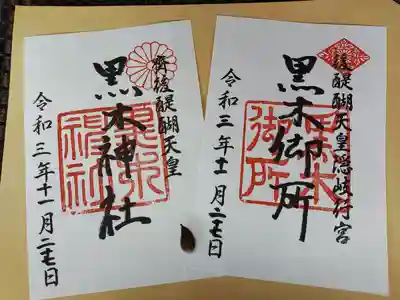 後醍醐天皇隠岐行宮
黒木御所
令和三年十一月二十七日
黒木御所
後醍醐天皇
黒木神社
令和三年十一月二十七日
黒木神社